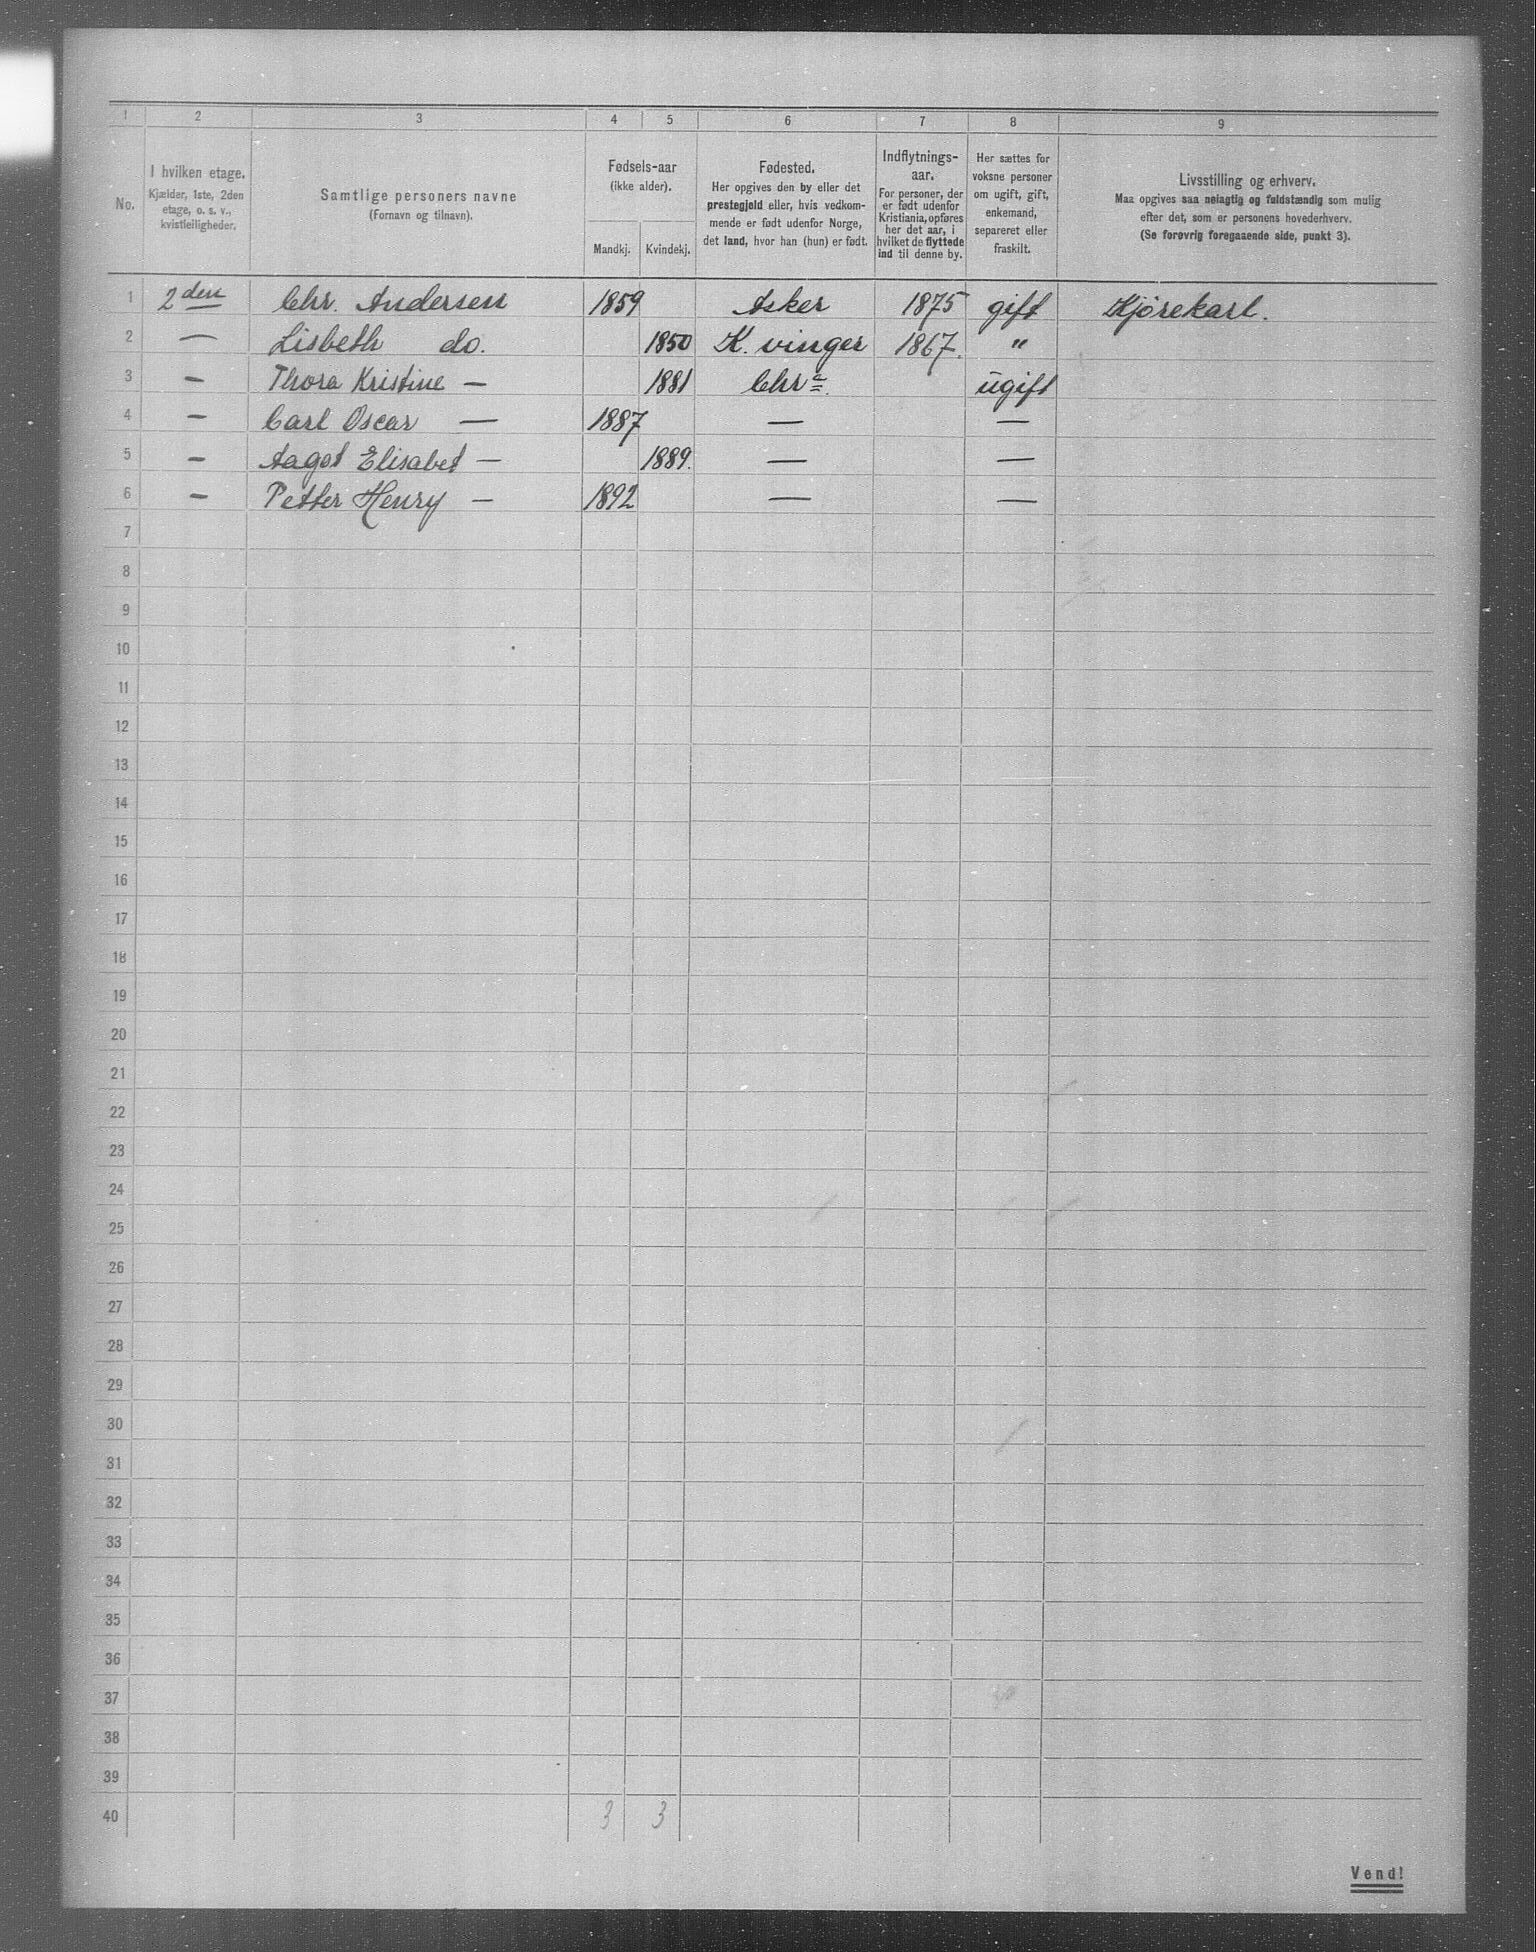 1 2 3 4 5 6 7 8 9
No.
I hvilken etage.
Kjælder, 1ste, 2den
etage, o. s. v.,
kvistleiligheder.
Samtlige personers navne
(Fornavn og tilnavn).
Fødsels-aar
(ikke alder).
Mandkj. Kvindekj.
Fødested.
Her opgives den by eller det
prestegjeld eller, hvis vedkom-
mende er født udenfor Norge,
det land, hvor han (hun) er født.
Indflytnings-
aar.
For personer, der
er født udenfor
Kristiania, opføres
her det aar, i
hvilket de flyttede
ind til denne by.
Her sættes for
voksne personer
om ugift, gift,
enkemand,
separeret eller
fraskilt.
Livsstilling og erhverv.
Maa opgives saa nøiagtig og fuldstændig som mulig
efter det, som er personens hovederhverv.
(Se forøvrig foregaaende side, punkt 3).
1 2den Chr. Andersen 1859 Asker 1875 gift Kjörekarl.
2 — Lisbeth do. 1850 K. vinger 1867. "
3 — Thora Kristine — 1881 Chra. ugift
4 — Carl Oscar — 1887 — —
5 — Aagot Elisabet — 1889. — —
6 — Petter Henry — 1892 — —
7
8
9
10
11
12
13
14
15
16
17
18
19
20
21
22
23
24
25
26
27
28
29
30
31
32
33
34
35
36
37
38
39
40 3 3
Vend!